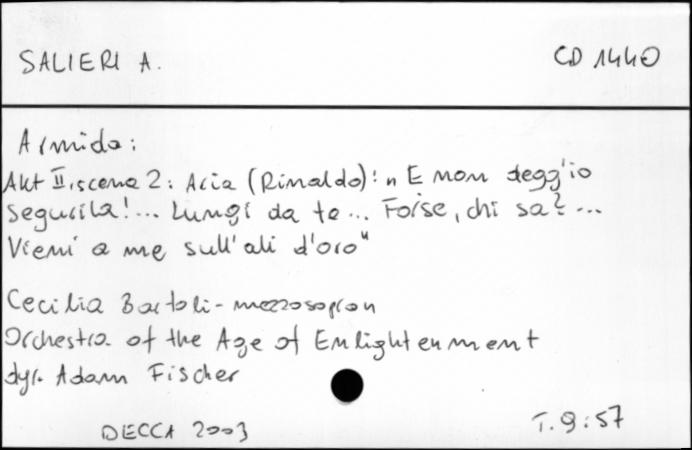 SALIERI A. CD 1440
Armida:
Akt II, scena 2: Aria (Rinaldo): „E non degg'io
seguirla!... Lungi da te... Forse, chi sa?...
Vieni a me sull'ali d'oro"
Cecilia Bartoli - mezzosopran
Orchestra of the Age of Enlightenment
dyr. Adam Fischer
DECCA 2003 T. 9:57